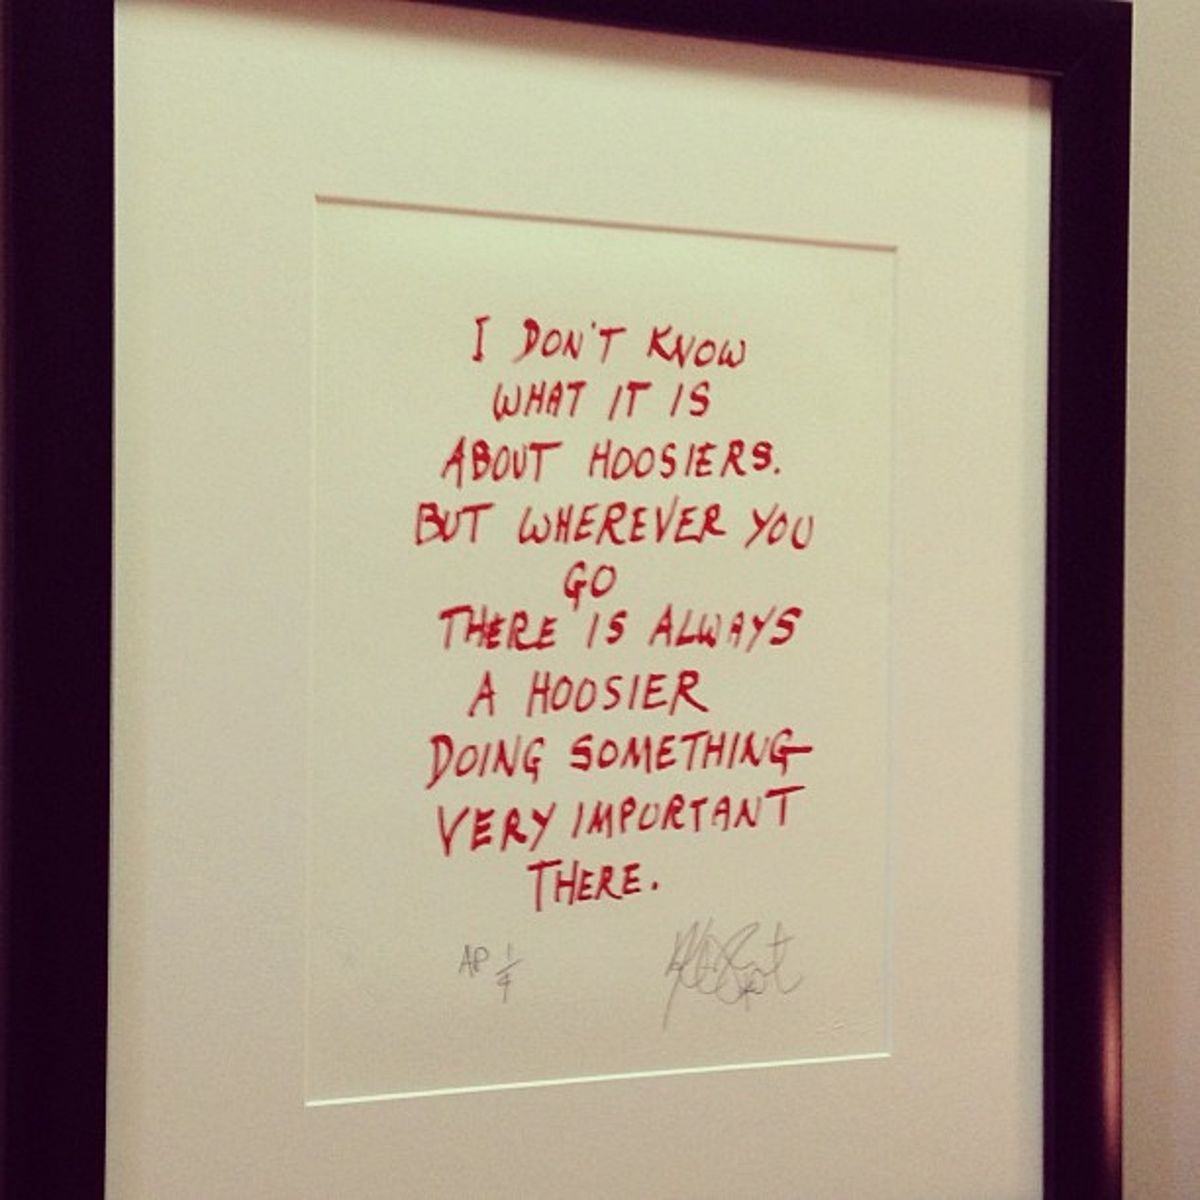 I DON'T KNOW
WHAT IT IS
ABOUT HOOSIERS.
BUT WHEREVER YOU
GO
THERE IS ALWAYS
A HOOSIER
DOING SOMETHING
VERY IMPORTANT
THERE.
AP 1/4